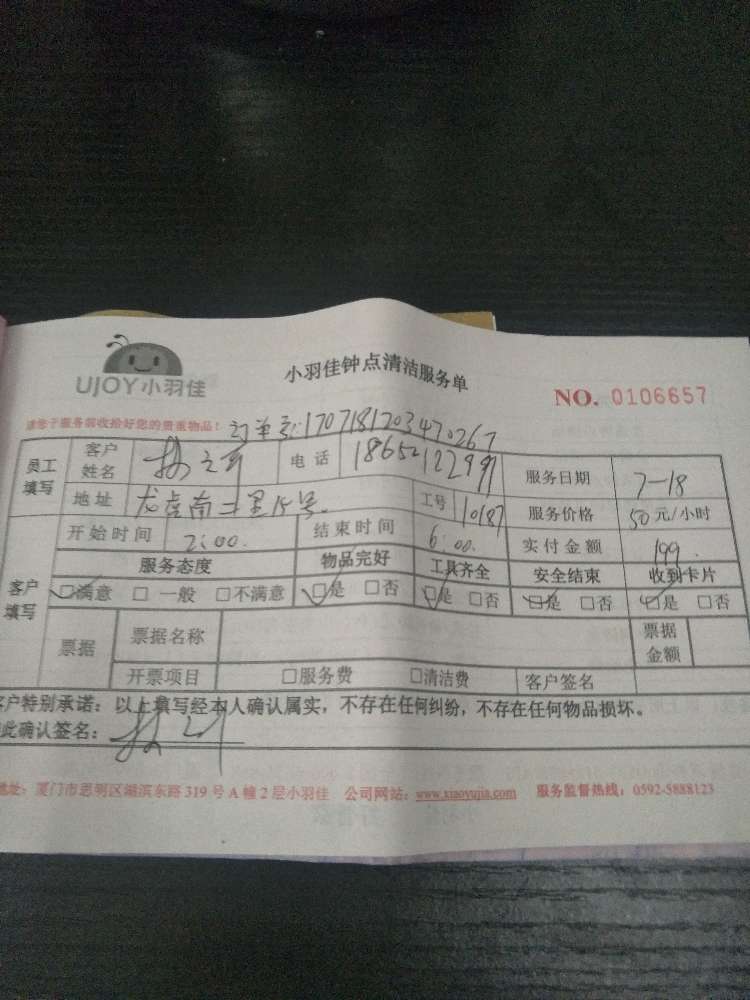 UJOY小羽佳
小羽佳钟点清洁服务单
NO. 0106657
请您于服务前收拾好您的贵重物品! 订单号:1707181203470267
员工填写 客户姓名 林 电话 服务日期 7-18
地址 龙虎南二里15号 工号 10187 服务价格 50元/小时
客户填写 开始时间 2:00. 结束时间 6:00. 实付金额 199.
服务态度 物品完好 工具齐全 安全结束 收到卡片
□满意 □一般 □不满意 □是 □否 □是 □否 □是 □否 □是 □否
票据 票据名称 票据金额
开票项目 □服务费 □清洁费 客户签名
客户特别承诺：以上填写经本人确认属实，不存在任何纠纷，不存在任何物品损坏。
此确认签名：
地址：厦门市思明区湖滨东路319号A幢2层小羽佳 公司网站：www.xiaoyujia.com 服务监督热线：0592-5888123